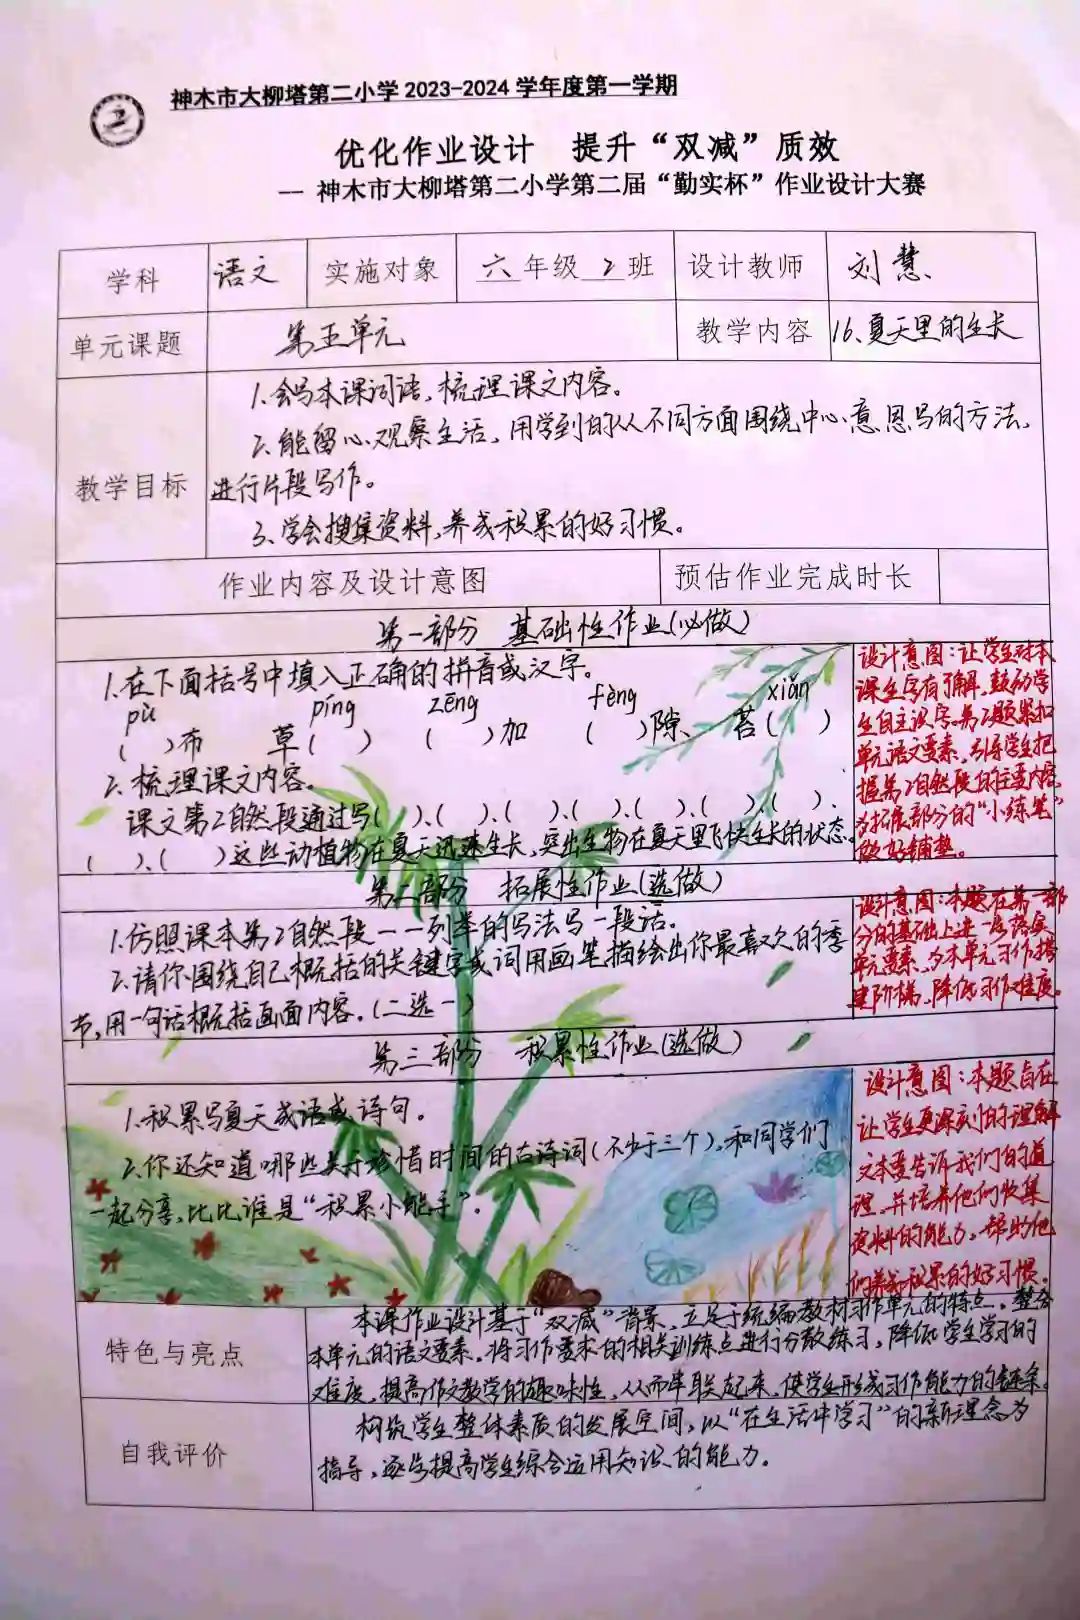 神木市大柳塔第二小学2023-2024学年度第一学期
优化作业设计 提升“双减”质效
— 神木市大柳塔第二小学第二届“勤实杯”作业设计大赛
学科 语文 实施对象 六年级 2班 设计教师 刘慧
单元课题 第五单元 教学内容 16.夏天里的生长
1.会写本课词语,梳理课文内容。
2.能留心观察生活,用学到的从不同方面围绕中心意思写的方法,
教学目标 进行片段写作。
3.学会搜集资料,养成积累的好习惯。
作业内容及设计意图 预估作业完成时长
第一部分 基础性作业(必做)
1.在下面括号中填入正确的拼音或汉字。
pù píng zēng fèng xiǎn
( )布 草( ) ( )加 ( )隙 苔( )
2.梳理课文内容。
课文第2自然段通过写( )、( )、( )、( )、( )、( )、( )、
( )、( )这些动植物在夏天迅速生长,突出生物在夏天里飞快生长的状态。
设计意图:让学生对本
课生字有了解,鼓动学
生自主识字。第2题紧扣
单元语文要素,引导学生把
握第2自然段的主要内容,
为拓展部分的“小练笔”
做好铺垫。
第二部分 拓展性作业(选做)
1.仿照课本第2自然段一一列举的写法写一段话。
2.请你围绕自己概括的关键字或词用画笔描绘出你最喜欢的季
节,用一句话概括画面内容。(二选一)
设计意图:本题在第一部
分的基础上进一步落实
单元要素,为本单元习作搭
建阶梯,降低习作难度。
第三部分 积累性作业(选做)
1.积累写夏天成语或诗句。
2.你还知道哪些关于珍惜时间的古诗词(不少于三个),和同学们
一起分享,比比谁是“积累小能手”。
设计意图:本题旨在
让学生更深刻的理解
文本要告诉我们的道
理,并培养他们收集
资料的能力,帮助他
们养成积累的好习惯。
本课作业设计基于“双减”背景,立足于统编教材习作单元的特点,整合
特色与亮点 本单元的语文要素,将习作要求的相关训练点进行分散练习,降低学生学习的
难度,提高作文教学的趣味性,从而串联起来,使学生形成习作能力的链条。
构筑学生整体素质的发展空间,以“在生活中学习”的新理念为
自我评价 指导,逐步提高学生综合运用知识的能力。